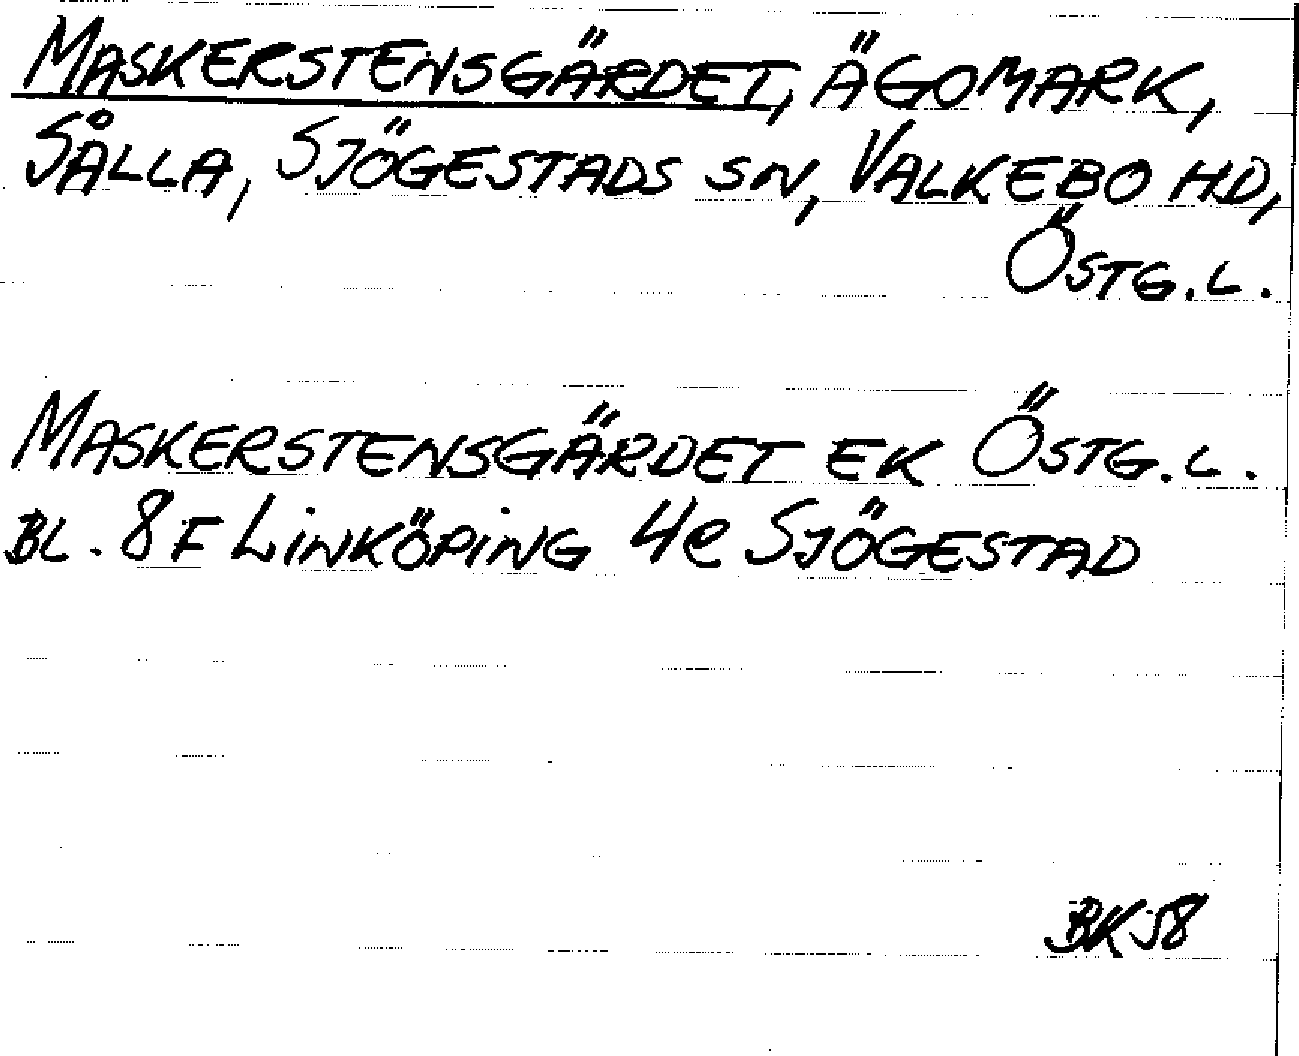 MASKERSTENSGÄRDET, ÄGOMARK,
SÅLLA, SJÖGESTADS SN, VALKEBO HD,
ÖSTG.L.
MASKERSTENSGÄRDET EK ÖSTG.L.
BL. 8F LINKÖPING 4e SJÖGESTAD
BK58